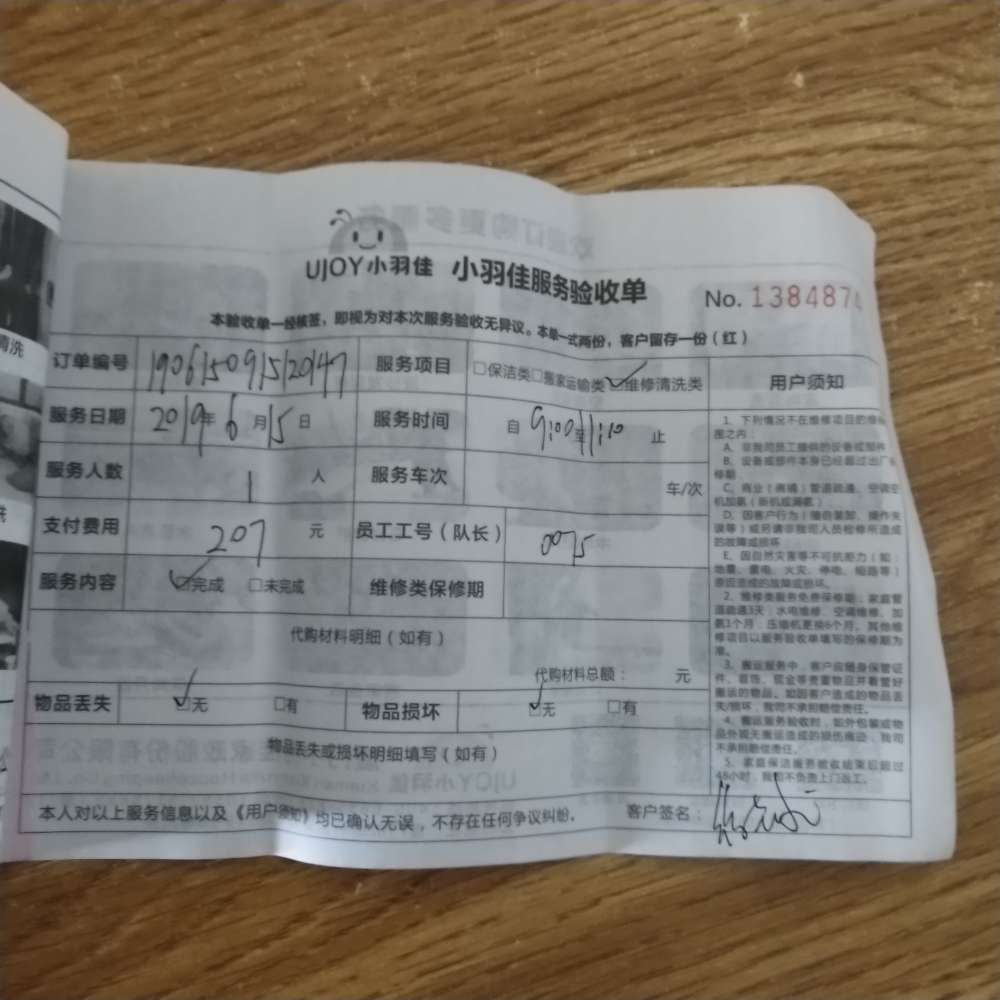 清洗
UJOY小羽佳 小羽佳服务验收单
No. 1384874
本验收单一经核签，即视为对本次服务验收无异议。本单一式两份，客户留存一份（红）
订单编号 190615091512047 服务项目 □保洁类□搬家运输类☑维修清洗类
服务日期 2019年6月15日 服务时间 自9:00至11:10止
服务人数 1人 服务车次 车/次
支付费用 207元 员工工号（队长） 0075
服务内容 ☑完成 □未完成 维修类保修期
代购材料明细（如有）
代购材料总额： 元
物品丢失 ☑无 □有 物品损坏 ☑无 □有
物品丢失或损坏明细填写（如有）
本人对以上服务信息以及《用户须知》均已确认无误，不存在任何争议纠纷。 客户签名：
用户须知
1、下列情况不在维修项目的保修
围之内：
A、非我司员工提供的设备或部件
B、设备或部件本身已经超过出厂
修期
C、商业（商铺）管道疏通、空调空
机加氨（新机或漏氨）
D、因客户行为（擅自装卸、操作失
误等）或另请非我司人员检修所造成
的故障或损坏
E、因自然灾害等不可抗拒力（如：
地震、雷电、火灾、停电、短路等）
原因造成的故障或损坏。
2、维修类服务免费保修期：家庭管
道疏通3天；水电维修、空调维修、加
氨1个月，压缩机更换6个月。其他维
修项目以服务验收单填写的保修期为
准。
3、搬运服务中，客户应随身保管证
件、首饰、现金等贵重物品并看管好
搬运的物品。如因客户造成的物品丢
失/损坏，我司不承担赔偿责任。
4、搬运服务验收时，如外包装或物
品外观无搬运造成的损伤痕迹，我司
不承担赔偿责任。
5、家庭保洁服务验收结束后超过
48小时，我司不负责上门返工。